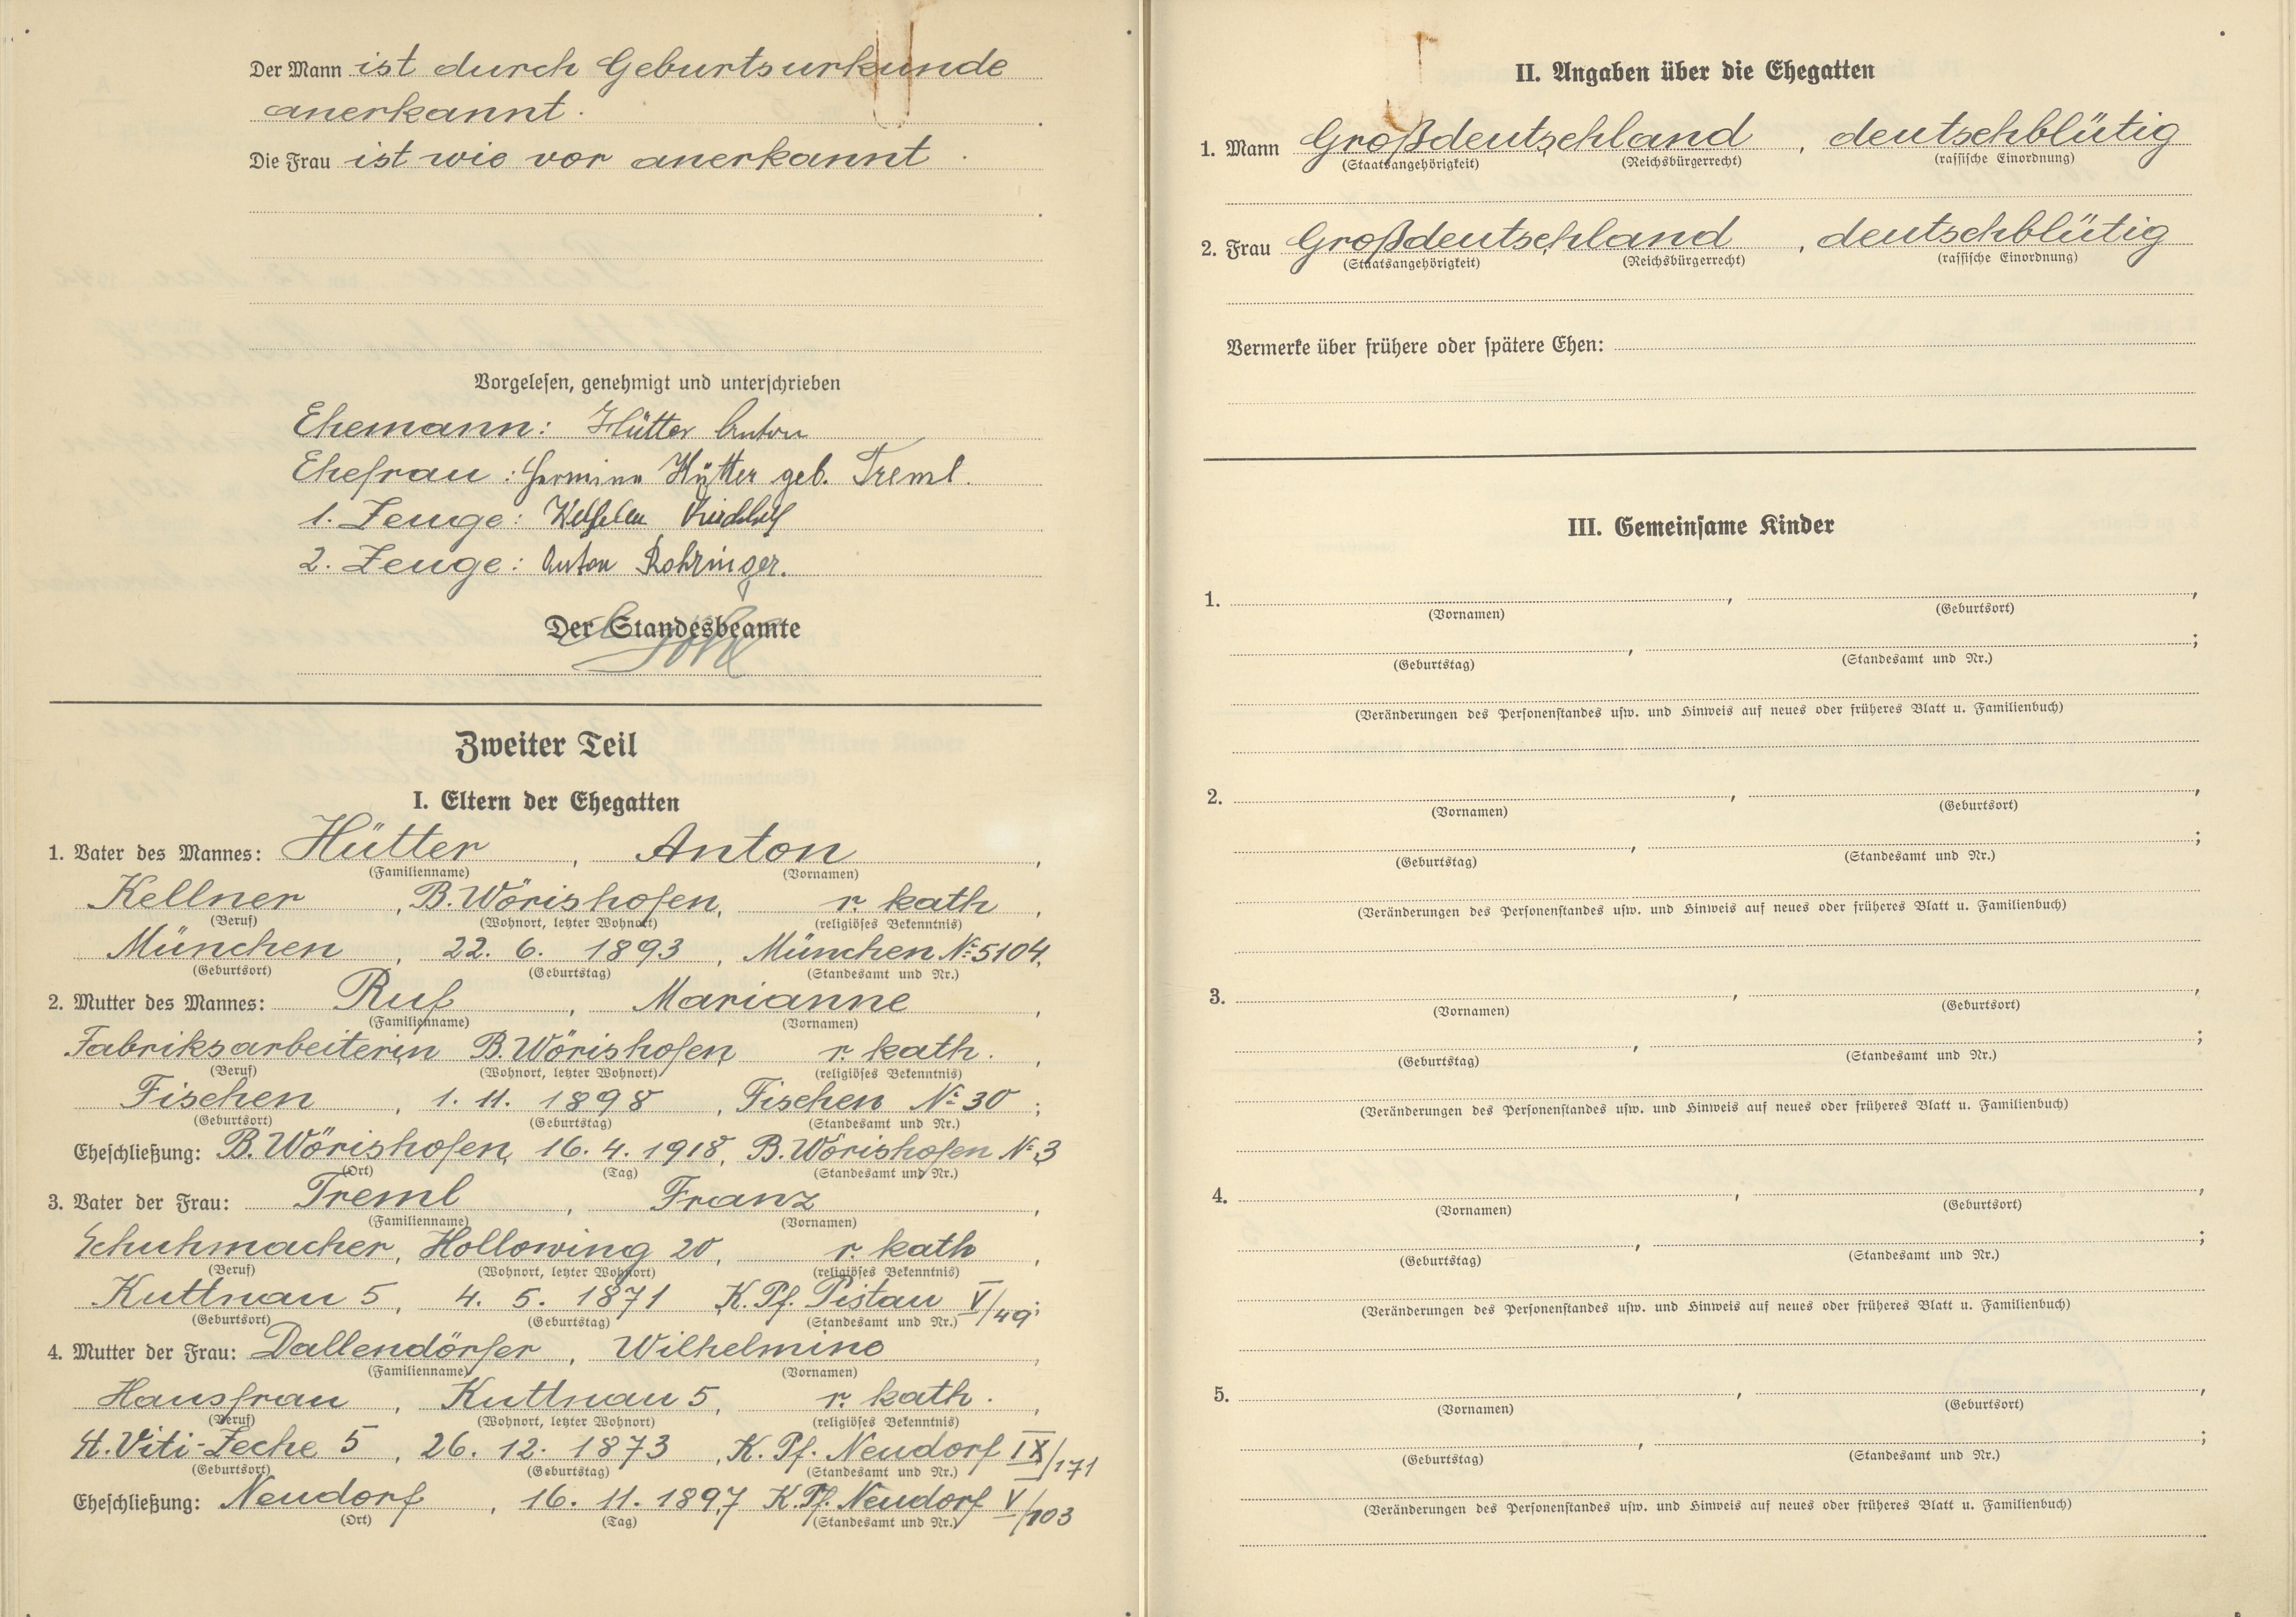 Der Mann ist durch Geburtsurkunde
anerkannt.
Die Frau ist wie vor anerkannt.
Vorgelesen, genehmigt und unterschrieben
Ehemann: Hütter Anton
Ehefrau: Hermine Hütter geb. Treml.
1. Zeuge:
2. Zeuge: Anton Rohringer.
Der Standesbeamte
Zweiter Teil
I. Eltern der Ehegatten
1. Vater des Mannes: Hütter, Anton,
(Familienname) (Vornamen)
Kellner, B. Wörishofen, r. kath,
(Beruf) (Wohnort, letzter Wohnort) (religiöses Bekenntnis)
München, 22. 6. 1893, München № 5104,
(Geburtsort) (Geburtstag) (Standesamt und Nr.)
2. Mutter des Mannes: Ruf, Marianne,
(Familienname) (Vornamen)
Fabriksarbeiterin, B. Wörishofen, r. kath.,
(Beruf) (Wohnort, letzter Wohnort) (religiöses Bekenntnis)
Fischen, 1. 11. 1898, Fischen № 30;
(Geburtsort) (Geburtstag) (Standesamt und Nr.)
Eheschließung: B. Wörishofen, 16. 4. 1918, B. Wörishofen № 3
(Ort) (Tag) (Standesamt und Nr.)
3. Vater der Frau: Treml, Franz,
(Familienname) (Vornamen)
Schuhmacher, Hollowing 20, r. kath,
(Beruf) (Wohnort, letzter Wohnort) (religiöses Bekenntnis)
Kuttnau 5, 4. 5. 1871, K. Pf. Pistau V/49;
(Geburtsort) (Geburtstag) (Standesamt und Nr.)
4. Mutter der Frau: Dallendörfer, Wilhelmine,
(Familienname) (Vornamen)
Hausfrau, Kuttnau 5, r. kath.,
(Beruf) (Wohnort, letzter Wohnort) (religiöses Bekenntnis)
St. Viti-Zeche 5, 26. 12. 1873, K. Pf. Neudorf IX/171
(Geburtsort) (Geburtstag) (Standesamt und Nr.)
Eheschließung: Neudorf, 16. 11. 1897, K. Pf. Neudorf V/103
(Ort) (Tag) (Standesamt und Nr.)
II. Angaben über die Ehegatten
1. Mann Großdeutschland, deutschblütig
(Staatsangehörigkeit) (Reichsbürgerrecht) (rassische Einordnung)
2. Frau Großdeutschland, deutschblütig
(Staatsangehörigkeit) (Reichsbürgerrecht) (rassische Einordnung)
Vermerke über frühere oder spätere Ehen:
III. Gemeinsame Kinder
1. , ,
(Vornamen) (Geburtsort)
, ;
(Geburtstag) (Standesamt und Nr.)
(Veränderungen des Personenstandes usw. und Hinweis auf neues oder früheres Blatt u. Familienbuch)
2. , ,
(Vornamen) (Geburtsort)
, ;
(Geburtstag) (Standesamt und Nr.)
(Veränderungen des Personenstandes usw. und Hinweis auf neues oder früheres Blatt u. Familienbuch)
3. , ,
(Vornamen) (Geburtsort)
, ;
(Geburtstag) (Standesamt und Nr.)
(Veränderungen des Personenstandes usw. und Hinweis auf neues oder früheres Blatt u. Familienbuch)
4. , ,
(Vornamen) (Geburtsort)
, ;
(Geburtstag) (Standesamt und Nr.)
(Veränderungen des Personenstandes usw. und Hinweis auf neues oder früheres Blatt u. Familienbuch)
5. , ,
(Vornamen) (Geburtsort)
, ;
(Geburtstag) (Standesamt und Nr.)
(Veränderungen des Personenstandes usw. und Hinweis auf neues oder früheres Blatt u. Familienbuch)